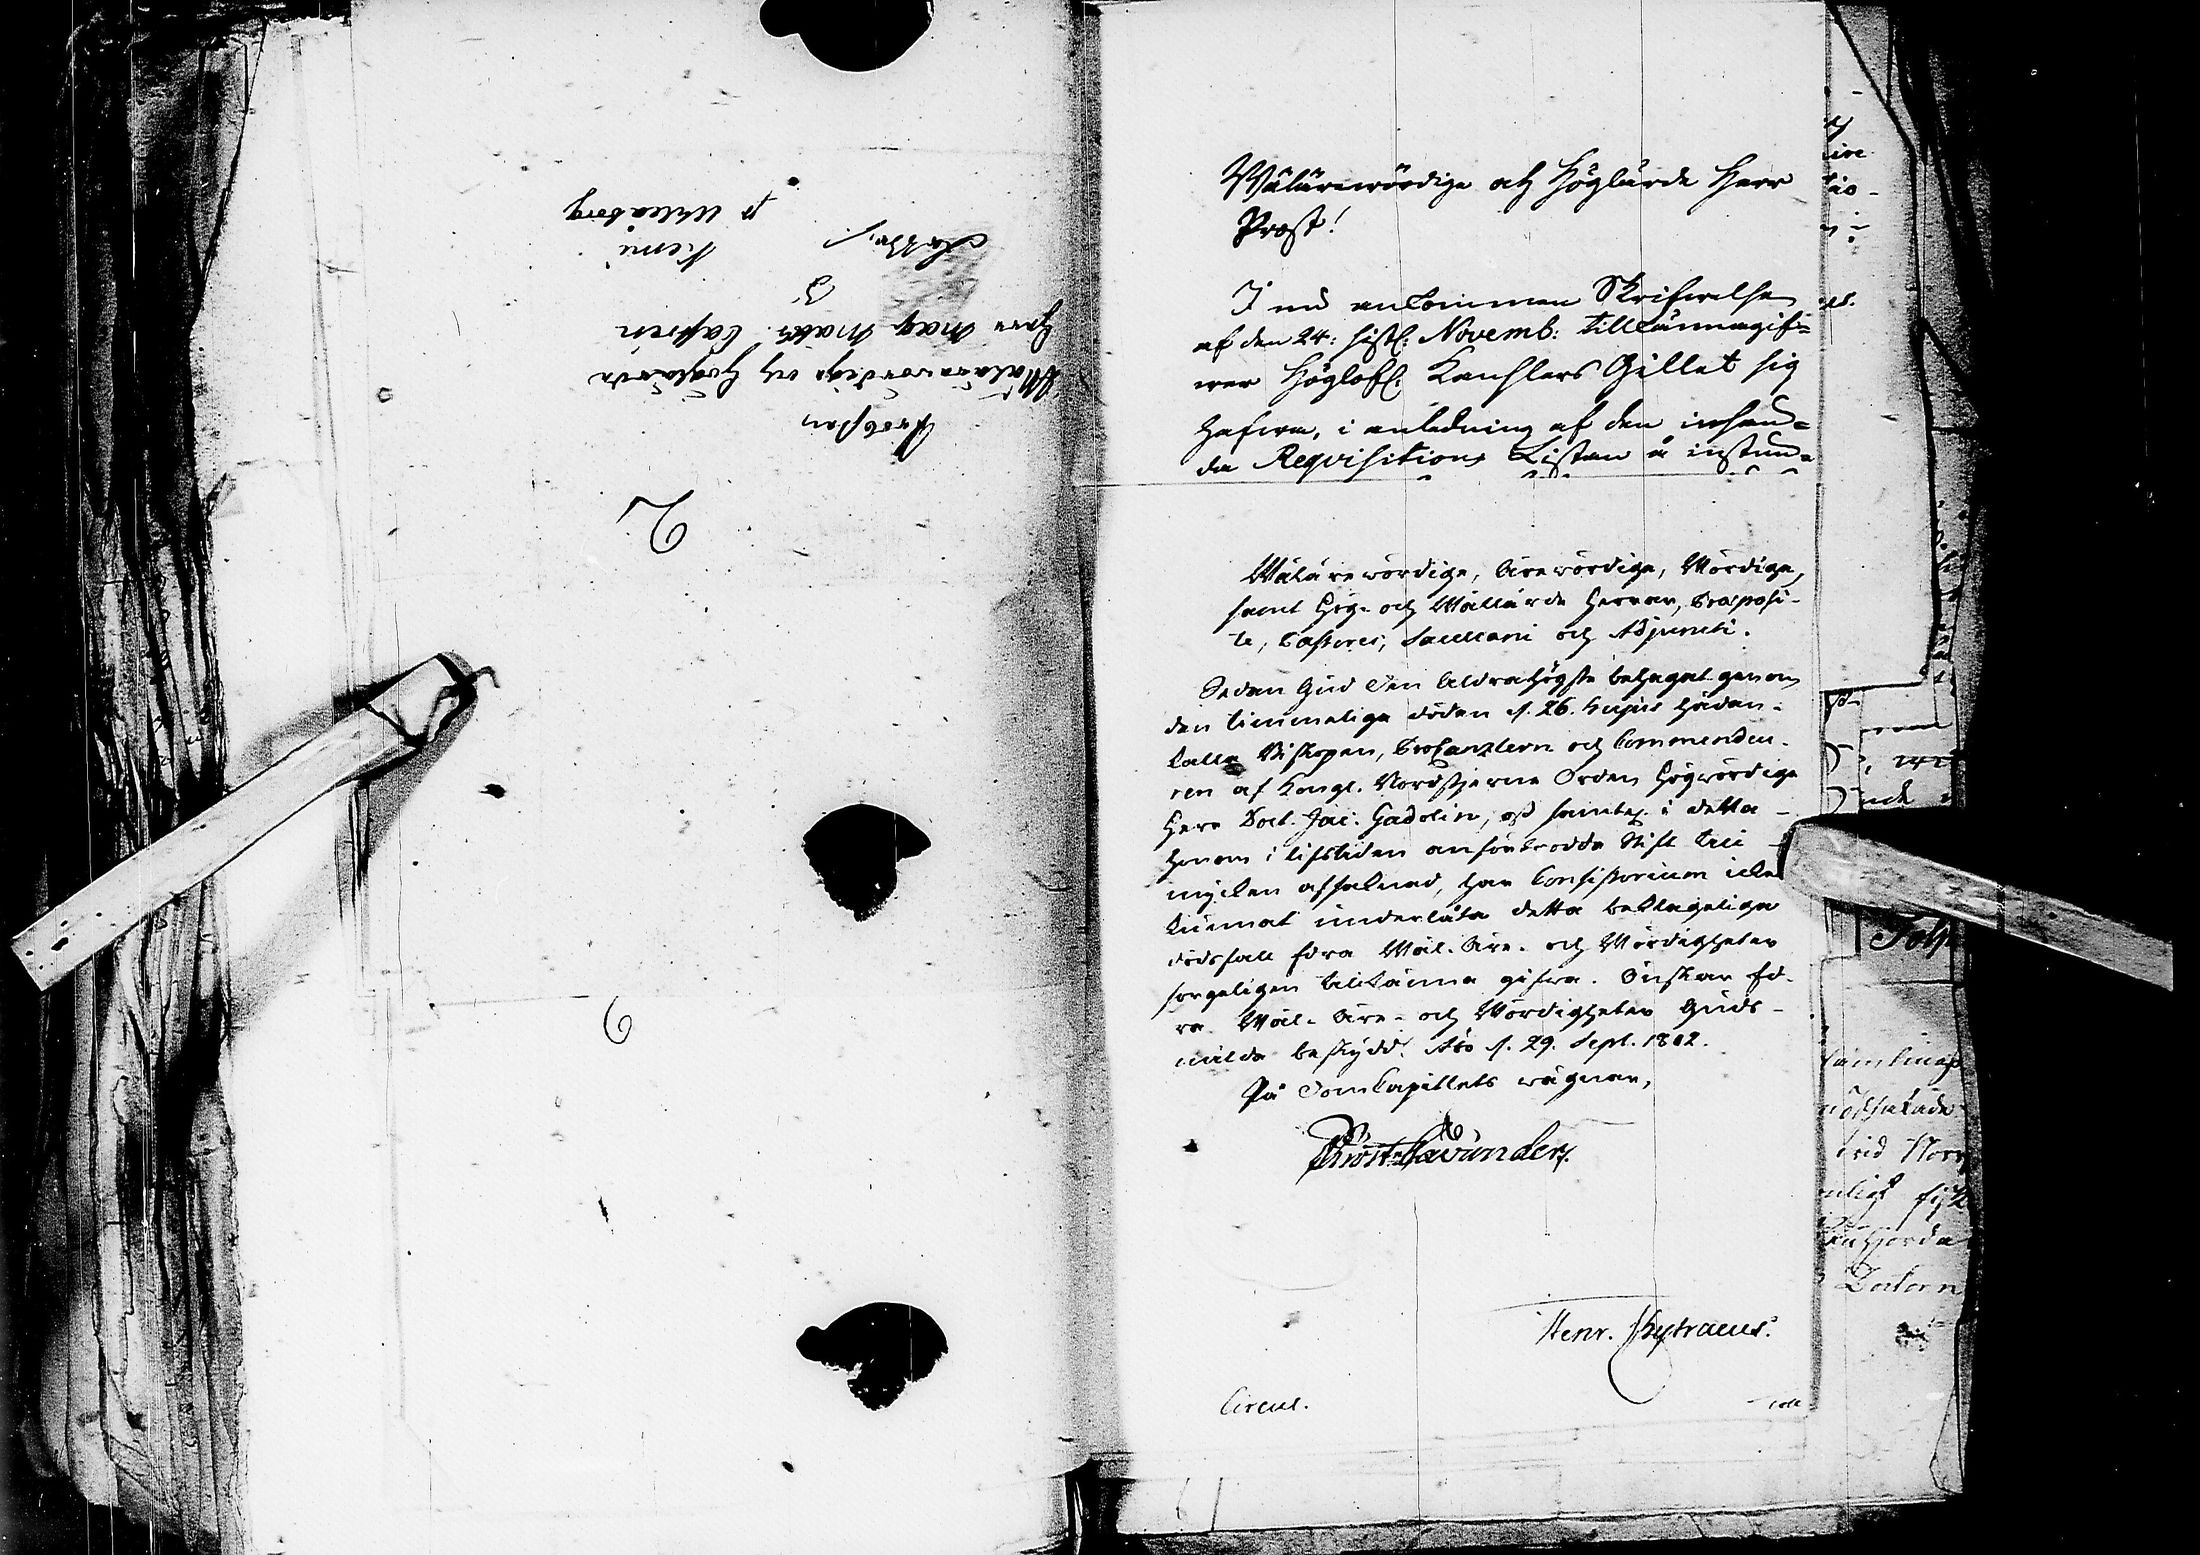 Prosten
Wälärewördige och Höglärde
Herr Mag. Matts Castrén
Kemi
p Uhleåborg
2
6
Wälärewördige och Höglärde Herr
Prost!
I nu ankommen Skrifwelse
af den 24: sistl. Novemb: tillkännagif=
wer Höglofl. Kanslers Gillet sig
hafwa, i anledning af den insän=
da Reqvisitions Listan å instun=
Wäläre wördige, Äre wördige, Wördige,
samt Hög- och Wällärde Herrar, Præposi-
te, Pastores, Sacellani och Adjuncti.
Sedan Gud Den Aldrahögste behagat genom
den timmeliga döden d. 26. hujus hädan-
kalla Biskopen, ProCanzleren och Commendeu-
ren af Kongl. Nordstjerne Orden Högwördige
Herr Doct. Jac. Gadolin, oss samtel. i detta
honom i lifstiden anförtrodda Stift till
mycken afsaknad, har Consistorium icke
kunnat underlåta detta beklageliga
dödsfall Edra Wäl- Äre- och Wördigheter
sorgeligen tillkänna gifwa. Önskar Ed-
ra Wäl- Äre- och Wördigheter Guds
milda beskydd. Åbo d. 29. Sept. 1802.
På DomCapitlets wägnar,
Henr. Chytraeus.
Circul.